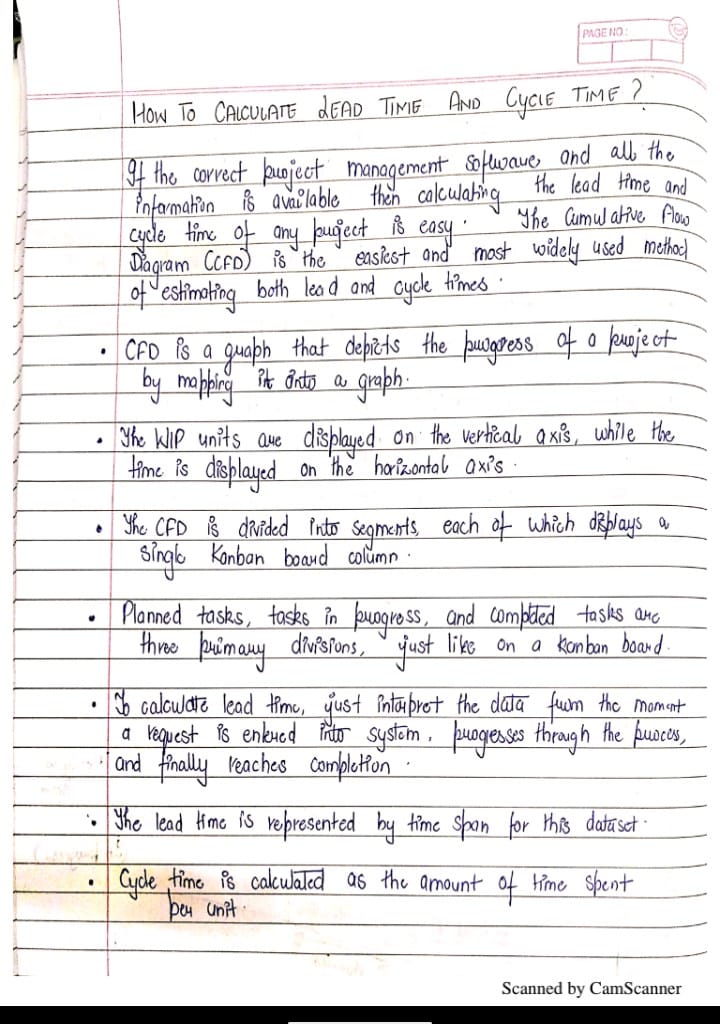 PAGE NO.:
HOW TO CALCULATE LEAD TIME AND CYCLE TIME ?
If the correct project management software, and all the
information is available then calculating the lead time and
cycle time of any project is easy. The Cumulative flow
Diagram (CFD) is the easiest and most widely used method
of estimating both lead and cycle times.
• CFD is a graph that depicts the progress of a project
by mapping it onto a graph.
• The WIP units are displayed on the vertical axis, while the
time is displayed on the horizontal axis.
• The CFD is divided into segments, each of which displays a
single Kanban board column.
• Planned tasks, tasks in progress, and completed tasks are
three primary divisions, just like on a Kanban board.
• To calculate lead time, just interpret the data from the moment
a request is entered into system, progresses through the process,
and finally reaches completion.
• The lead time is represented by time span for this dataset.
• Cycle time is calculated as the amount of time spent
per unit.
Scanned by CamScanner